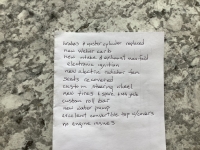 brakes & master cylinder replaced
new weber carb
new intake & exhaust manifold
electronic ignition
new electric radiator fan
seats recovered
custom steering wheel
new tires & spare
custom roll bar
new water pump
excellent convertible top w/covers
no engine issues